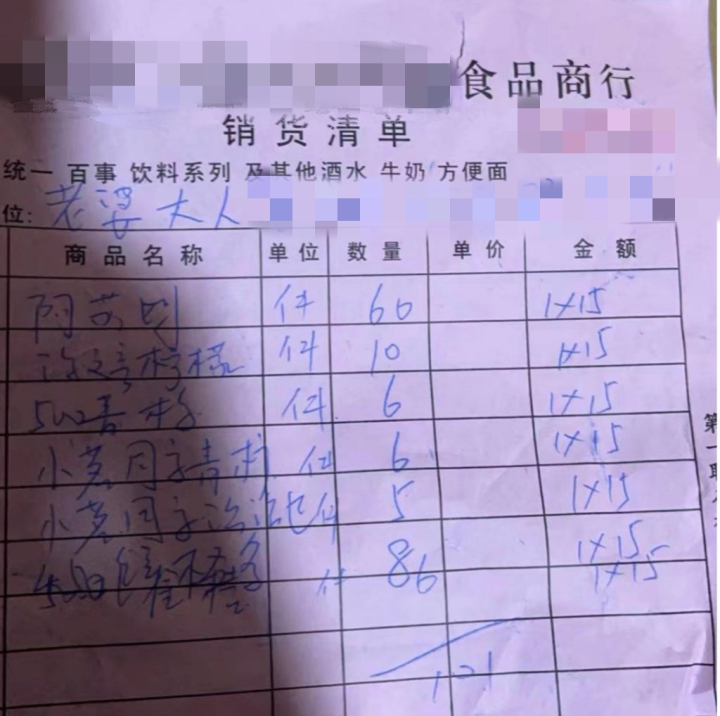 食品商行
销货清单
统一 百事 饮料系列 及其他酒水 牛奶 方便面
位: 老婆大人
商品名称 单位 数量 单价 金额
阿萨姆 件 60 1×15
海之言柠檬 件 10 1×15
500青梅 件 6 1×15
小茗同学青柠 件 6 1×15
小茗同学 件 5 1×15
件 8 1×15
6 1×15
121
第一联